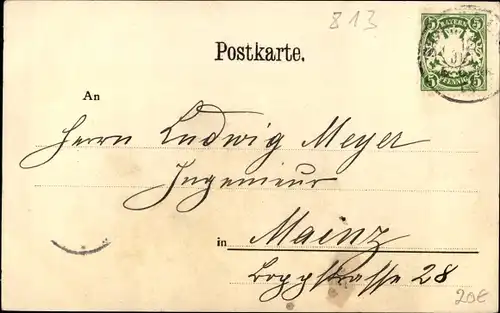 813
Postkarte.
5 BAYERN 5
5 PFENNIG 5
An
Herrn Ludwig Meyer
Ingenieur
in Mainz
Boppstrasse 28
20€